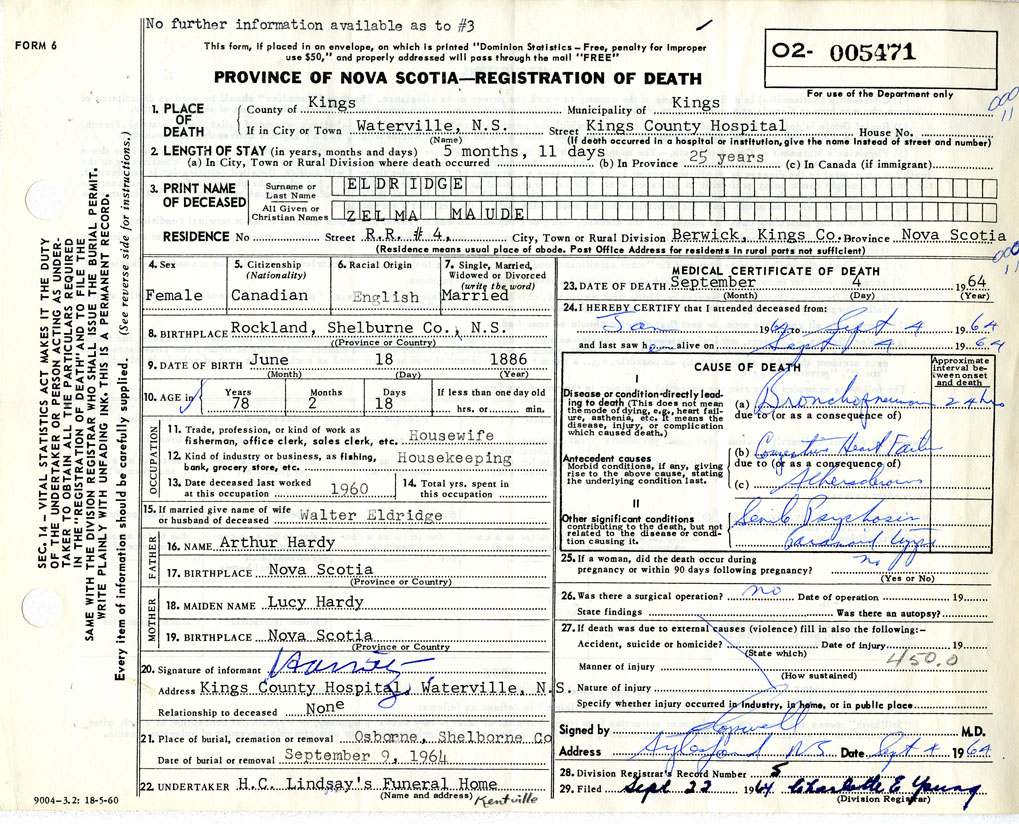 No further information available as to #3
FORM 6
This form, if placed in an envelope, on which is printed "Dominion Statistics – Free, penalty for improper
use $50," and properly addressed will pass through the mail "FREE"
02- 005471
For use of the Department only
PROVINCE OF NOVA SCOTIA—REGISTRATION OF DEATH
000
11
1. PLACE OF DEATH
County of Kings Municipality of Kings
If in City or Town Waterville, N.S. Street Kings County Hospital House No.
(Name) (If death occurred in a hospital or institution, give the name instead of street and number)
2. LENGTH OF STAY (in years, months and days) 5 months, 11 days
(a) In City, Town or Rural Division where death occurred (b) In Province 25 years (c) In Canada (if immigrant)
3. PRINT NAME OF DECEASED
Surname or Last Name ELDRIDGE
All Given or Christian Names ZELMA MAUDE
RESIDENCE No Street R.R. # 4, City, Town or Rural Division Berwick, Kings Co. Province Nova Scotia
(Residence means usual place of abode. Post Office Address for residents in rural parts not sufficient)
000
11
4. Sex Female
5. Citizenship (Nationality) Canadian
6. Racial Origin English
7. Single, Married, Widowed or Divorced (write the word) Married
8. BIRTHPLACE Rockland, Shelburne Co., N.S.
(Province or Country)
9. DATE OF BIRTH June 18 1886
(Month) (Day) (Year)
10. AGE in Years 78 Months 2 Days 18 If less than one day old hrs. or min.
OCCUPATION
11. Trade, profession, or kind of work as fisherman, office clerk, sales clerk, etc. Housewife
12. Kind of industry or business, as fishing, bank, grocery store, etc. Housekeeping
13. Date deceased last worked at this occupation 1960
14. Total yrs. spent in this occupation
15. If married give name of wife or husband of deceased Walter Eldridge
FATHER
16. NAME Arthur Hardy
17. BIRTHPLACE Nova Scotia
(Province or Country)
MOTHER
18. MAIDEN NAME Lucy Hardy
19. BIRTHPLACE Nova Scotia
(Province or Country)
20. Signature of informant
Address Kings County Hospital, Waterville, N.S.
Relationship to deceased None
21. Place of burial, cremation or removal Osborne, Shelborne Co
Date of burial or removal September 9, 1964
22. UNDERTAKER H.C. Lindsay's Funeral Home
(Name and address) Kentville
MEDICAL CERTIFICATE OF DEATH
23. DATE OF DEATH September 4 1964
(Month) (Day) (Year)
24. I HEREBY CERTIFY that I attended deceased from:
Jan 1964 to Sept 4 1964
and last saw her alive on Sept 4 1964
CAUSE OF DEATH
Approximate interval between onset and death
I
Disease or condition directly leading to death (This does not mean the mode of dying, e.g., heart failure, asthenia, etc. It means the disease, injury, or complication which caused death.)
(a) Bronchopneumon 24 hrs
due to (or as a consequence of)
Antecedent causes
Morbid conditions, if any, giving rise to the above cause, stating the underlying condition last.
(b) Congestive Heart Failure
due to (or as a consequence of)
(c)
II
Other significant conditions contributing to the death, but not related to the disease or condition causing it.
Senile Psychosis
paranoid type
25. If a woman, did the death occur during pregnancy or within 90 days following pregnancy? no
(Yes or No)
26. Was there a surgical operation? no Date of operation 19
State findings Was there an autopsy?
27. If death was due to external causes (violence) fill in also the following:–
Accident, suicide or homicide? Date of injury 19
(State which)
450.0
Manner of injury
(How sustained)
Nature of injury
Specify whether injury occurred in industry, in home, or in public place
Signed by M.D.
Address Aylesford NS Date Sept 4 1964
28. Division Registrar's Record Number 5
29. Filed Sept 22 1964 Charlotte E Young
(Division Registrar)
9004–3.2: 18-5-60
SEC. 14—VITAL STATISTICS ACT MAKES IT THE DUTY
OF THE UNDERTAKER OR PERSON ACTING AS UNDER-
TAKER TO OBTAIN ALL THE PARTICULARS REQUIRED
IN THE "REGISTRATION OF DEATH" AND TO FILE THE
SAME WITH THE DIVISION REGISTRAR WHO SHALL ISSUE THE BURIAL PERMIT.
WRITE PLAINLY WITH UNFADING INK. THIS IS A PERMANENT RECORD.
Every item of information should be carefully supplied. (See reverse side for instructions.)